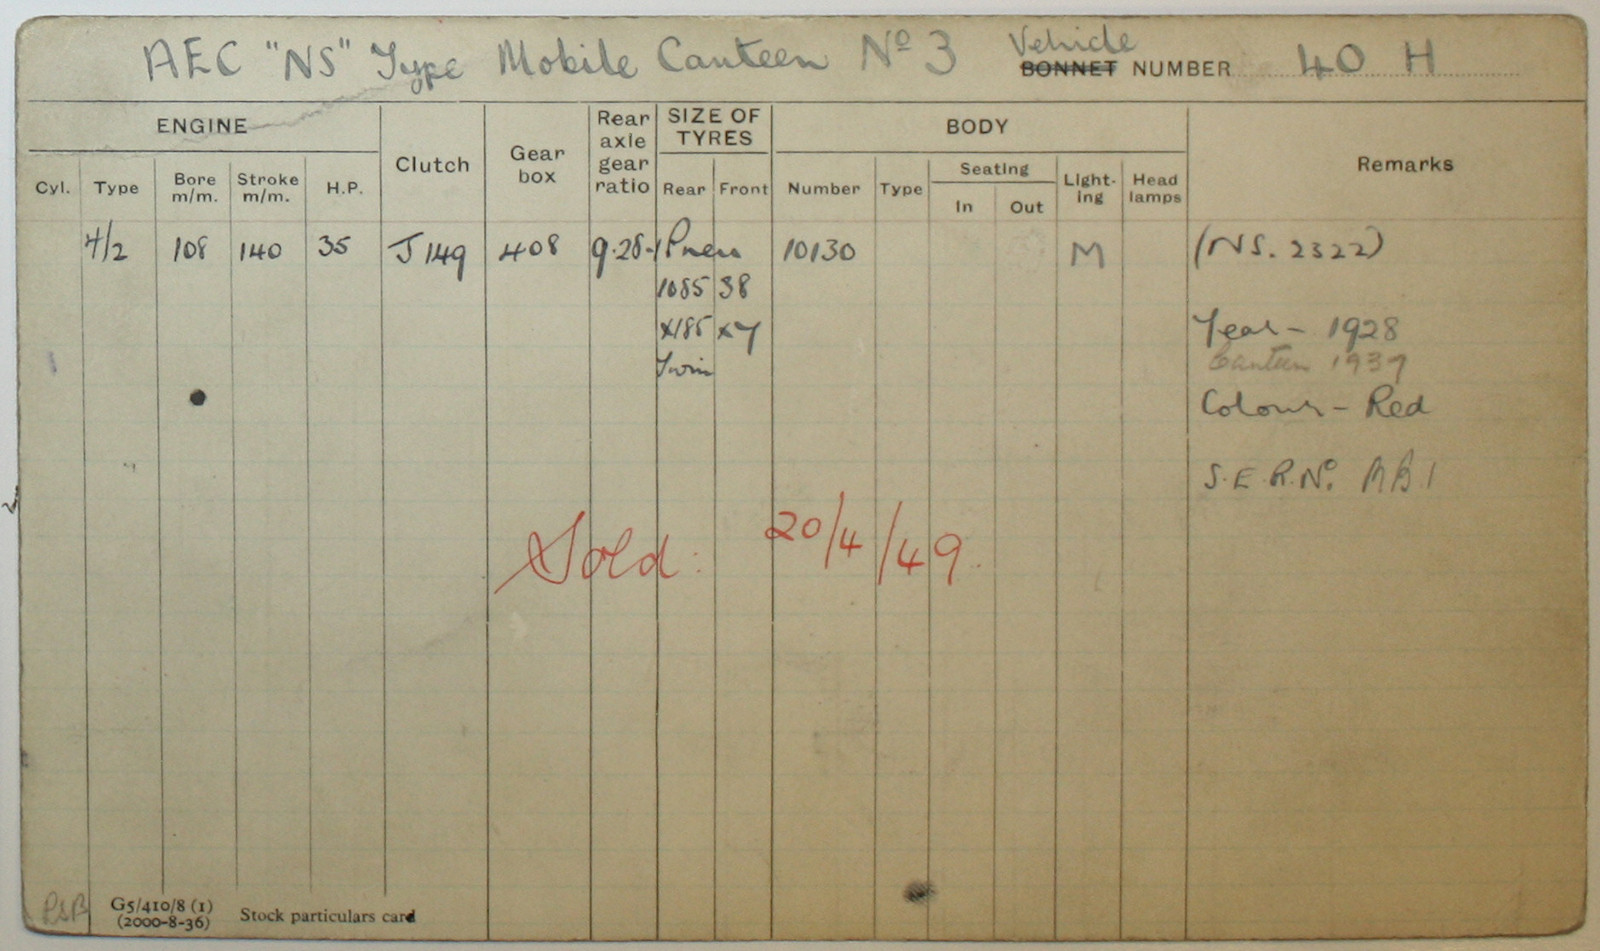 AEC "NS" Type Mobile Canteen Nº 3 Vehicle BONNET NUMBER 40 H
ENGINE
Clutch
Gear box
Rear axle gear ratio
SIZE OF TYRES
BODY
Remarks
Cyl.
Type
Bore m/m.
Stroke m/m.
H.P.
Rear
Front
Number
Type
Seating
In
Out
Light-ing
Head lamps
4/2 108 140 35 J149 408 9.28-1 Pneu 10130 M (NS. 2322)
1085 38
x185 x7 Year - 1928
Twin Canteen 1937
Colour - Red
S.E.R.Nº.
Sold: 20/4/49.
G5/410/8 (1)
(2000-8-36)
Stock particulars card